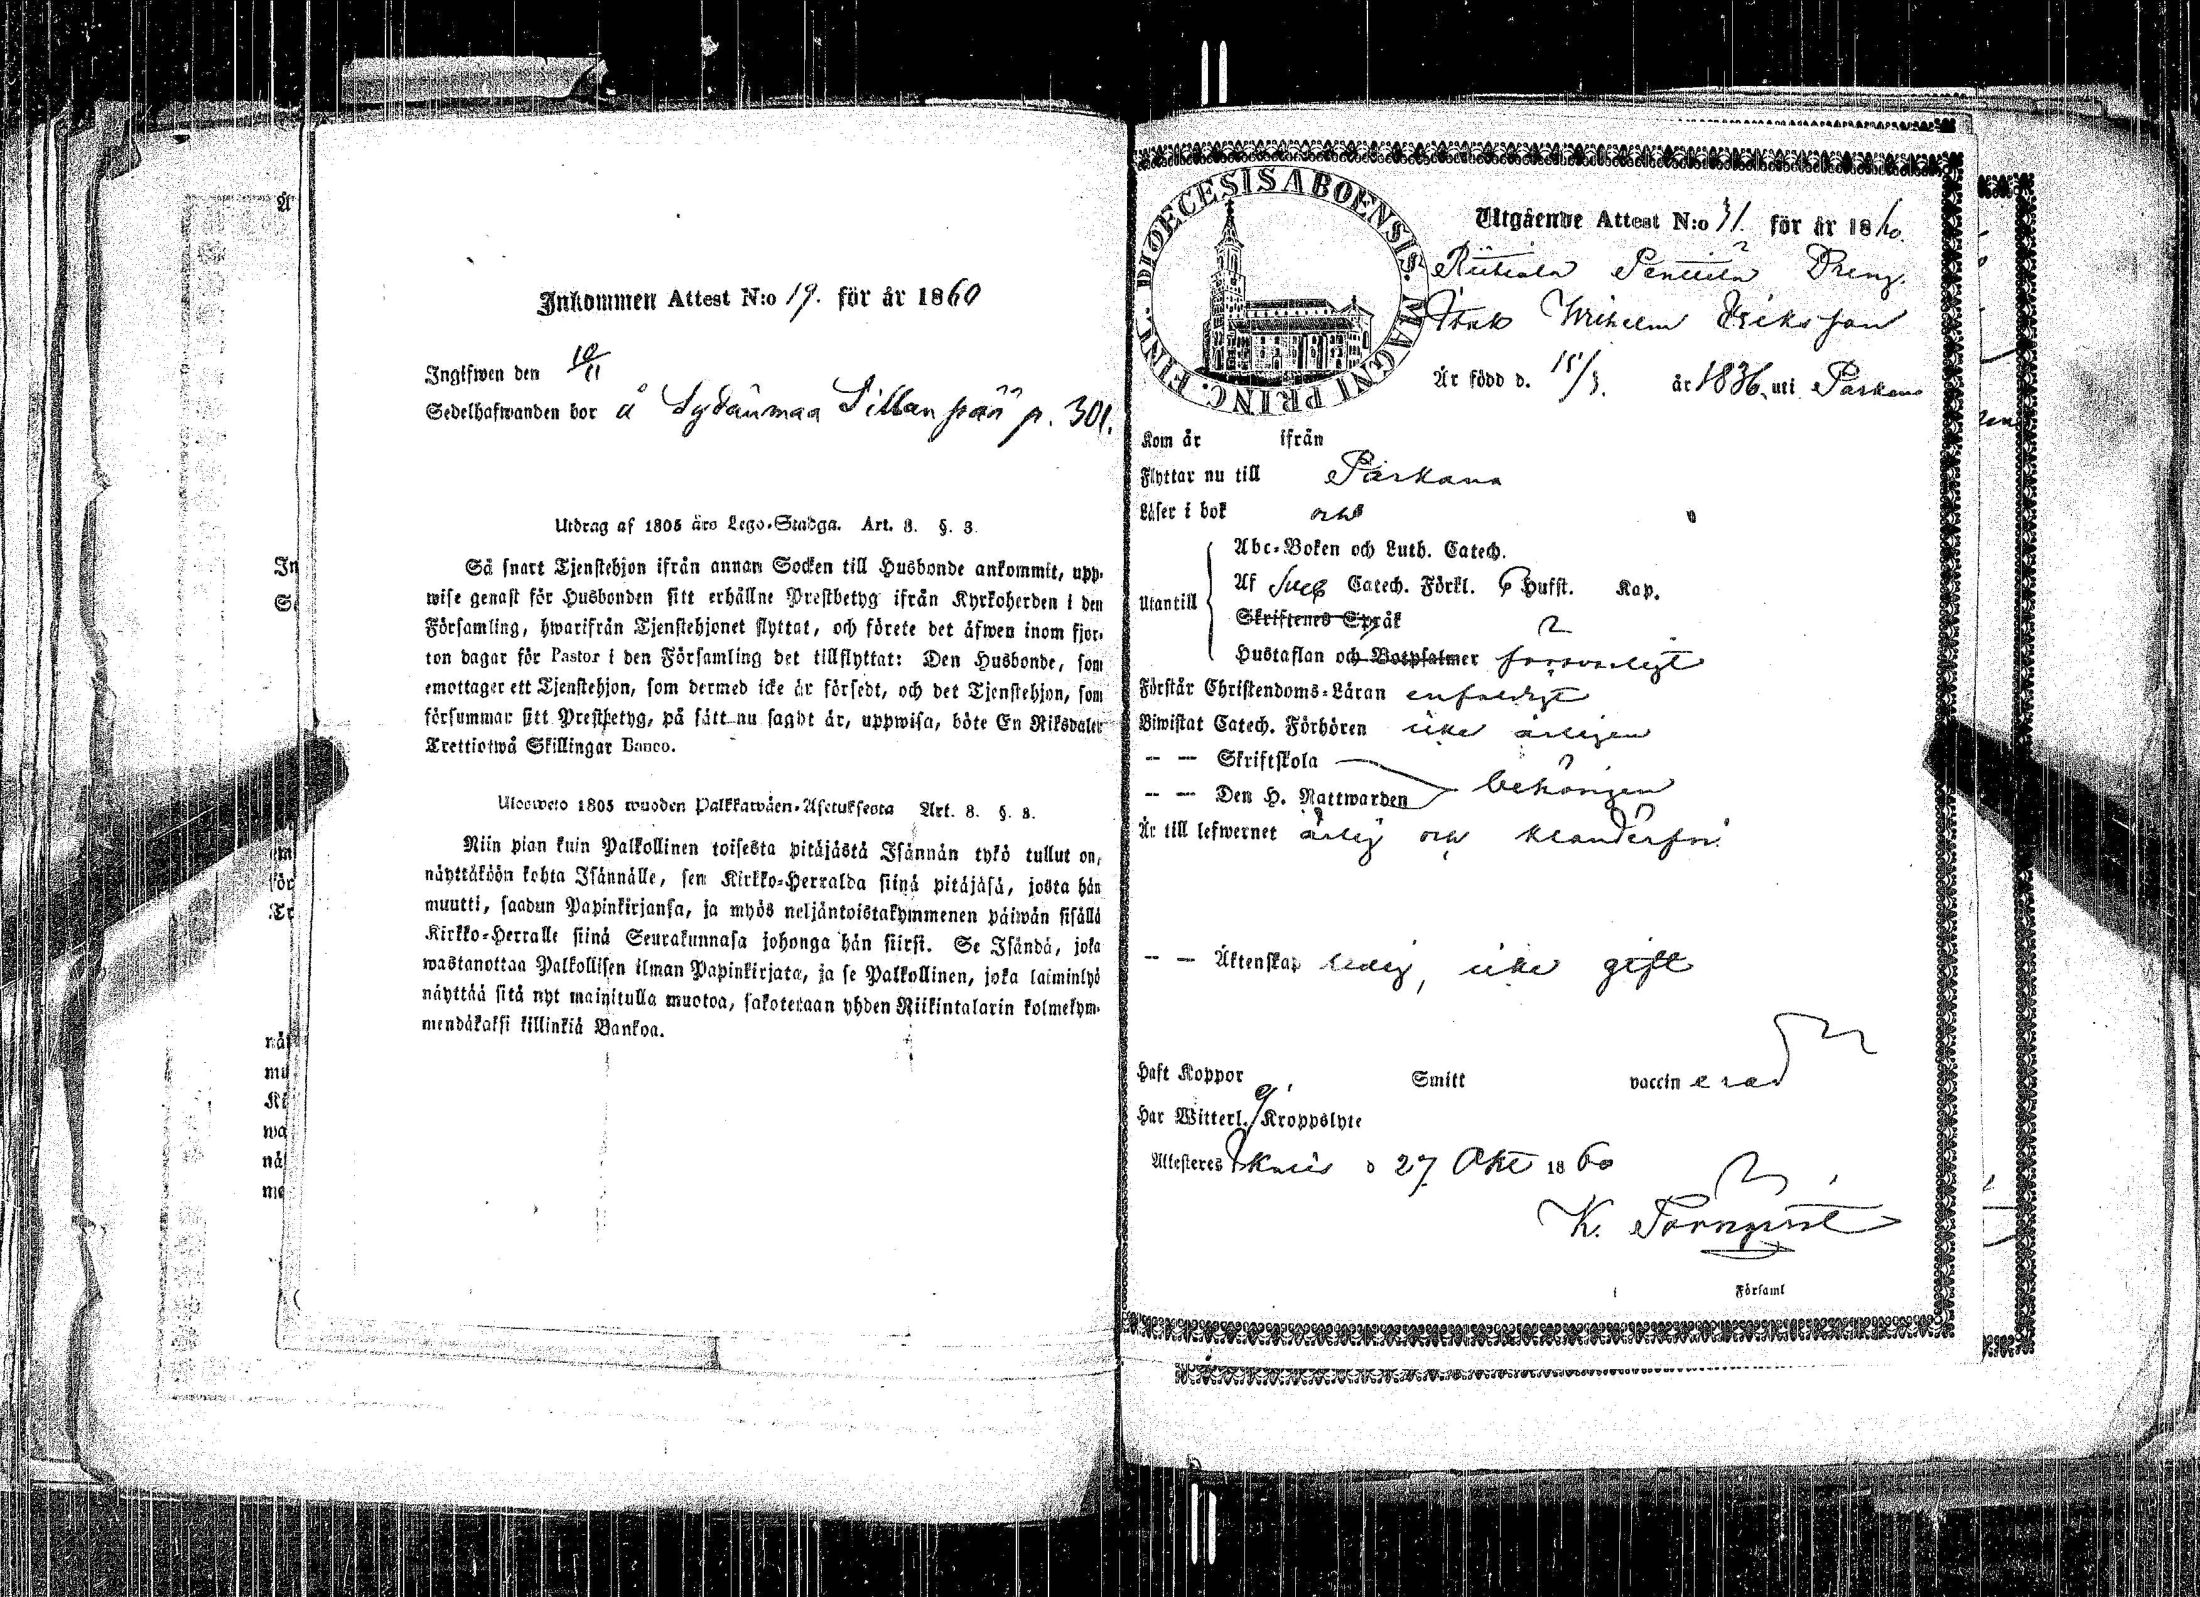 Inkommen Attest N:o 19. för år 1860
Ingifwen den 10/11
Sedelhafwanden bor å Sydänmaa Sillanpää p. 301.
Utdrag af 1805 års Lego-Stadga. Art. 3. §. 3.
Så snart Tjenstehjon ifrån annan Socken till Husbonde ankommit, upp-
wise genast för Husbonden sitt erhållne Prestbetyg ifrån Kyrkoherden i den
Församling, hwarifrån Tjenstehjonet flyttat, och förete det äfwen inom fjor-
ton dagar för Pastor i den Församling det tillflyttat: Den Husbonde, som
emottager ett Tjenstehjon, som dermed icke är försedt, och det Tjenstehjon, som
försummar sitt Prestbetyg, på sätt nu sagdt är, uppwisa, böte En Riksdaler
Trettiotwå Skillingar Banco.
Ulosweto 1805 wuoden Palkkawäen-Asetuksesta Art. 3. §. 3.
Niin pian kuin Palkollinen toisesta pitäjästä Isännän tykö tullut on,
näyttäköön kohta Isännälle, sen Kirkko-Herralda siinä pitäjäsä, josta hän
muutti, saadun Papinkirjansa, ja myös neljäntoistakymmenen päiwän sisällä
Kirkko-Herralle siinä Seurakunnasa johonga hän siirsi. Se Isändä, joka
wastanottaa Palkollisen ilman Papinkirjata, ja se Palkollinen, joka laiminlyö
näyttää sitä nyt mainitulla muotoa, sakotetaan yhden Riikintalarin kolmekym-
mendäkaksi killinkiä Bankoa.
DIOECESIS ABOENSIS. MAGNI PRINC. FINL.
Utgående Attest N:o 31. för år 1860.
Pentilä Dreng
Isak Wilhelm Eriksson
Är född d. 15/3. år 1836, uti Parkano
Kom år ifrån
Flyttar nu till Parkano
Läser i bok och
Utantill
Abc-Boken och Luth. Catech.
Af Sveb Catech. Förkl. 6 Hufst. Kap.
Skriftenes Språk
Hustaflan och Botpsalmer försvarligt
Förstår Christendoms-Läran enfaldigt
Biwistat Catech. Förhören icke årligen
-- — Skriftskola
-- — Den H. Nattwarden behörigen
Är till lefwernet ärlig och klanderfri
-- — Äktenskap ledig, icke gift
Haft Koppor Smitt vaccinerad
Har Witterl. ej Kroppslyte
Attesteres Ikalis d 27 Okt 1860
K. Törnqvist
Församl